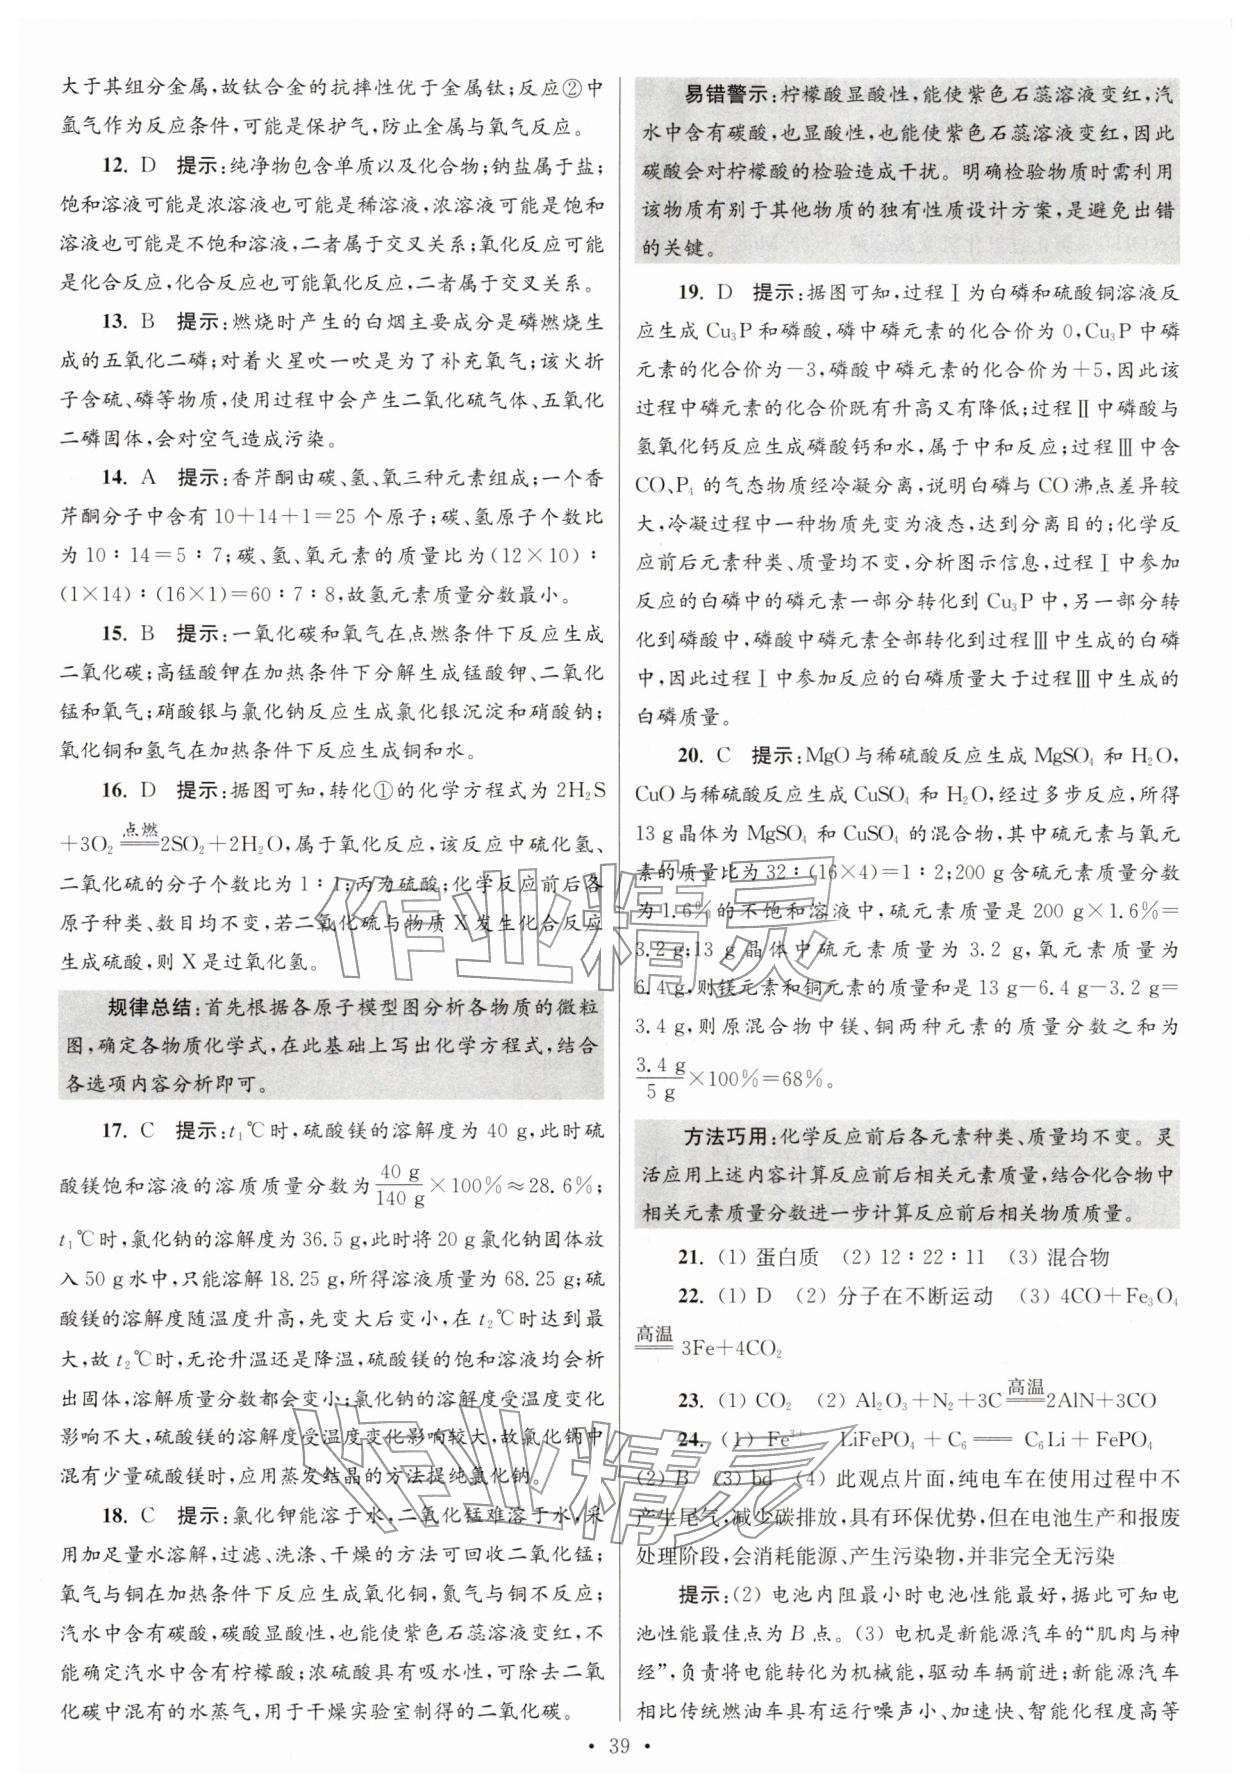 大于其组分金属,故钛合金的抗摔性优于金属钛;反应②中
氩气作为反应条件,可能是保护气,防止金属与氧气反应。
12. D 提示:纯净物包含单质以及化合物;钠盐属于盐;
饱和溶液可能是浓溶液也可能是稀溶液,浓溶液可能是饱和
溶液也可能是不饱和溶液,二者属于交叉关系;氧化反应可能
是化合反应,化合反应也可能氧化反应,二者属于交叉关系。
13. B 提示:燃烧时产生的白烟主要成分是磷燃烧生
成的五氧化二磷;对着火星吹一吹是为了补充氧气;该火折
子含硫、磷等物质,使用过程中会产生二氧化硫气体、五氧化
二磷固体,会对空气造成污染。
14. A 提示:香芹酮由碳、氢、氧三种元素组成;一个香
芹酮分子中含有10+14+1=25个原子;碳、氢原子个数比
为10∶14=5∶7;碳、氢、氧元素的质量比为(12×10)∶
(1×14)∶(16×1)=60∶7∶8,故氢元素质量分数最小。
15. B 提示:一氧化碳和氧气在点燃条件下反应生成
二氧化碳;高锰酸钾在加热条件下分解生成锰酸钾、二氧化
锰和氧气;硝酸银与氯化钠反应生成氯化银沉淀和硝酸钠;
氧化铜和氢气在加热条件下反应生成铜和水。
16. D 提示:据图可知,转化①的化学方程式为2H₂S
+3O₂ 点燃═2SO₂+2H₂O,属于氧化反应,该反应中硫化氢、
二氧化硫的分子个数比为1∶1;丙为硫酸;化学反应前后各
原子种类、数目均不变,若二氧化硫与物质X发生化合反应
生成硫酸,则X是过氧化氢。
规律总结:首先根据各原子模型图分析各物质的微粒
图,确定各物质化学式,在此基础上写出化学方程式,结合
各选项内容分析即可。
17. C 提示:t₁℃时,硫酸镁的溶解度为40 g,此时硫
酸镁饱和溶液的溶质质量分数为40 g/140 g×100%≈28.6%;
t₁℃时,氯化钠的溶解度为36.5 g,此时将20 g氯化钠固体放
入50 g水中,只能溶解18.25 g,所得溶液质量为68.25 g;硫
酸镁的溶解度随温度升高,先变大后变小,在t₂℃时达到最
大,故t₂℃时,无论升温还是降温,硫酸镁的饱和溶液均会析
出固体,溶解质量分数都会变小;氯化钠的溶解度受温度变化
影响不大,硫酸镁的溶解度受温度变化影响较大,故氯化钠中
混有少量硫酸镁时,应用蒸发结晶的方法提纯氯化钠。
18. C 提示:氯化钾能溶于水,二氧化锰难溶于水,采
用加足量水溶解,过滤、洗涤、干燥的方法可回收二氧化锰;
氧气与铜在加热条件下反应生成氧化铜,氮气与铜不反应;
汽水中含有碳酸,碳酸显酸性,也能使紫色石蕊溶液变红,不
能确定汽水中含有柠檬酸;浓硫酸具有吸水性,可除去二氧
化碳中混有的水蒸气,用于干燥实验室制得的二氧化碳。
易错警示:柠檬酸显酸性,能使紫色石蕊溶液变红,汽
水中含有碳酸,也显酸性,也能使紫色石蕊溶液变红,因此
碳酸会对柠檬酸的检验造成干扰。明确检验物质时需利用
该物质有别于其他物质的独有性质设计方案,是避免出错
的关键。
19. D 提示:据图可知,过程Ⅰ为白磷和硫酸铜溶液反
应生成Cu₃P和磷酸,磷中磷元素的化合价为0,Cu₃P中磷
元素的化合价为-3,磷酸中磷元素的化合价为+5,因此该
过程中磷元素的化合价既有升高又有降低;过程Ⅱ中磷酸与
氢氧化钙反应生成磷酸钙和水,属于中和反应;过程Ⅲ中含
CO、P₄的气态物质经冷凝分离,说明白磷与CO沸点差异较
大,冷凝过程中一种物质先变为液态,达到分离目的;化学反
应前后元素种类、质量均不变,分析图示信息,过程Ⅰ中参加
反应的白磷中的磷元素一部分转化到Cu₃P中,另一部分转
化到磷酸中,磷酸中磷元素全部转化到过程Ⅲ中生成的白磷
中,因此过程Ⅰ中参加反应的白磷质量大于过程Ⅲ中生成的
白磷质量。
20. C 提示:MgO与稀硫酸反应生成MgSO₄和H₂O,
CuO与稀硫酸反应生成CuSO₄和H₂O,经过多步反应,所得
13 g晶体为MgSO₄和CuSO₄的混合物,其中硫元素与氧元
素的质量比为32∶(16×4)=1∶2;200 g含硫元素质量分数
为1.6%的不饱和溶液中,硫元素质量是200 g×1.6%=
3.2 g;13 g晶体中硫元素质量为3.2 g,氧元素质量为
6.4 g,则镁元素和铜元素的质量和是13 g-6.4 g-3.2 g=
3.4 g,则原混合物中镁、铜两种元素的质量分数之和为
3.4 g/5 g×100%=68%。
方法巧用:化学反应前后各元素种类、质量均不变。灵
活应用上述内容计算反应前后相关元素质量,结合化合物中
相关元素质量分数进一步计算反应前后相关物质质量。
21. (1) 蛋白质 (2) 12∶22∶11 (3) 混合物
22. (1) D (2) 分子在不断运动 (3) 4CO+Fe₃O₄
高温═3Fe+4CO₂
23. (1) CO₂ (2) Al₂O₃+N₂+3C 高温═2AlN+3CO
24. (1) Fe³⁺ LiFePO₄+C₆═C₆Li+FePO₄
(2) B (3) bd (4) 此观点片面,纯电车在使用过程中不
产生尾气,减少碳排放,具有环保优势,但在电池生产和报废
处理阶段,会消耗能源、产生污染物,并非完全无污染
提示:(2) 电池内阻最小时电池性能最好,据此可知电
池性能最佳点为B点。(3) 电机是新能源汽车的“肌肉与神
经”,负责将电能转化为机械能,驱动车辆前进;新能源汽车
相比传统燃油车具有运行噪声小、加速快、智能化程度高等
·39·
作业精灵
作业精灵